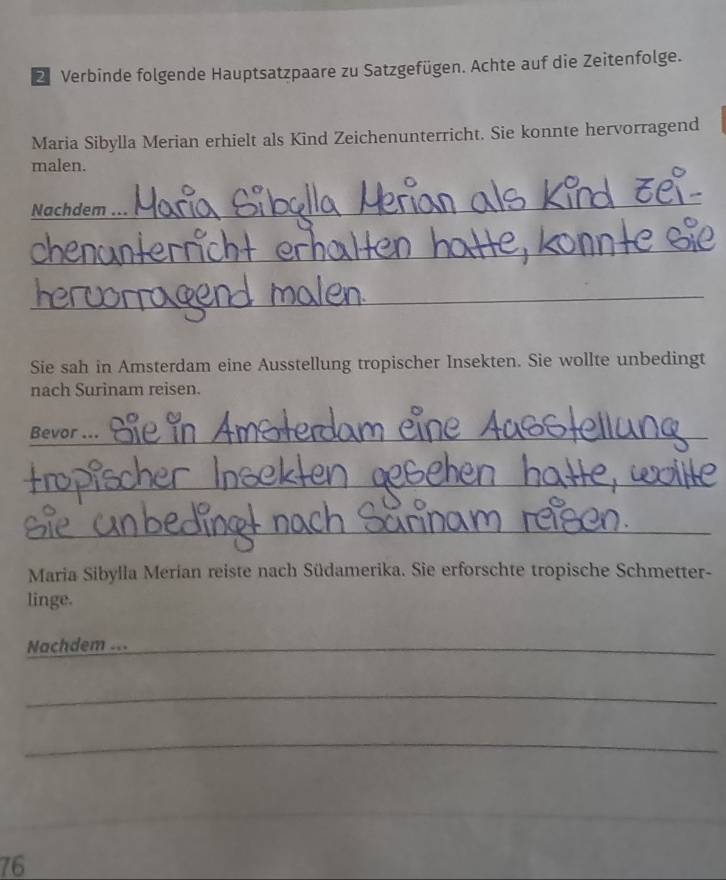 2 Verbinde folgende Hauptsatzpaare zu Satzgefügen. Achte auf die Zeitenfolge.
Maria Sibylla Merian erhielt als Kind Zeichenunterricht. Sie konnte hervorragend
malen.
Nachdem ... Maria Sibylla Merian als Kind Zei-
chenunterricht erhalten hatte, konnte sie
hervorragend malen.
Sie sah in Amsterdam eine Ausstellung tropischer Insekten. Sie wollte unbedingt
nach Surinam reisen.
Bevor ... Sie in Amsterdam eine Ausstellung
tropischer Insekten gesehen hatte, wollte
sie unbedingt nach Surinam reisen.
Maria Sibylla Merian reiste nach Südamerika. Sie erforschte tropische Schmetter-
linge.
Nachdem ...
76